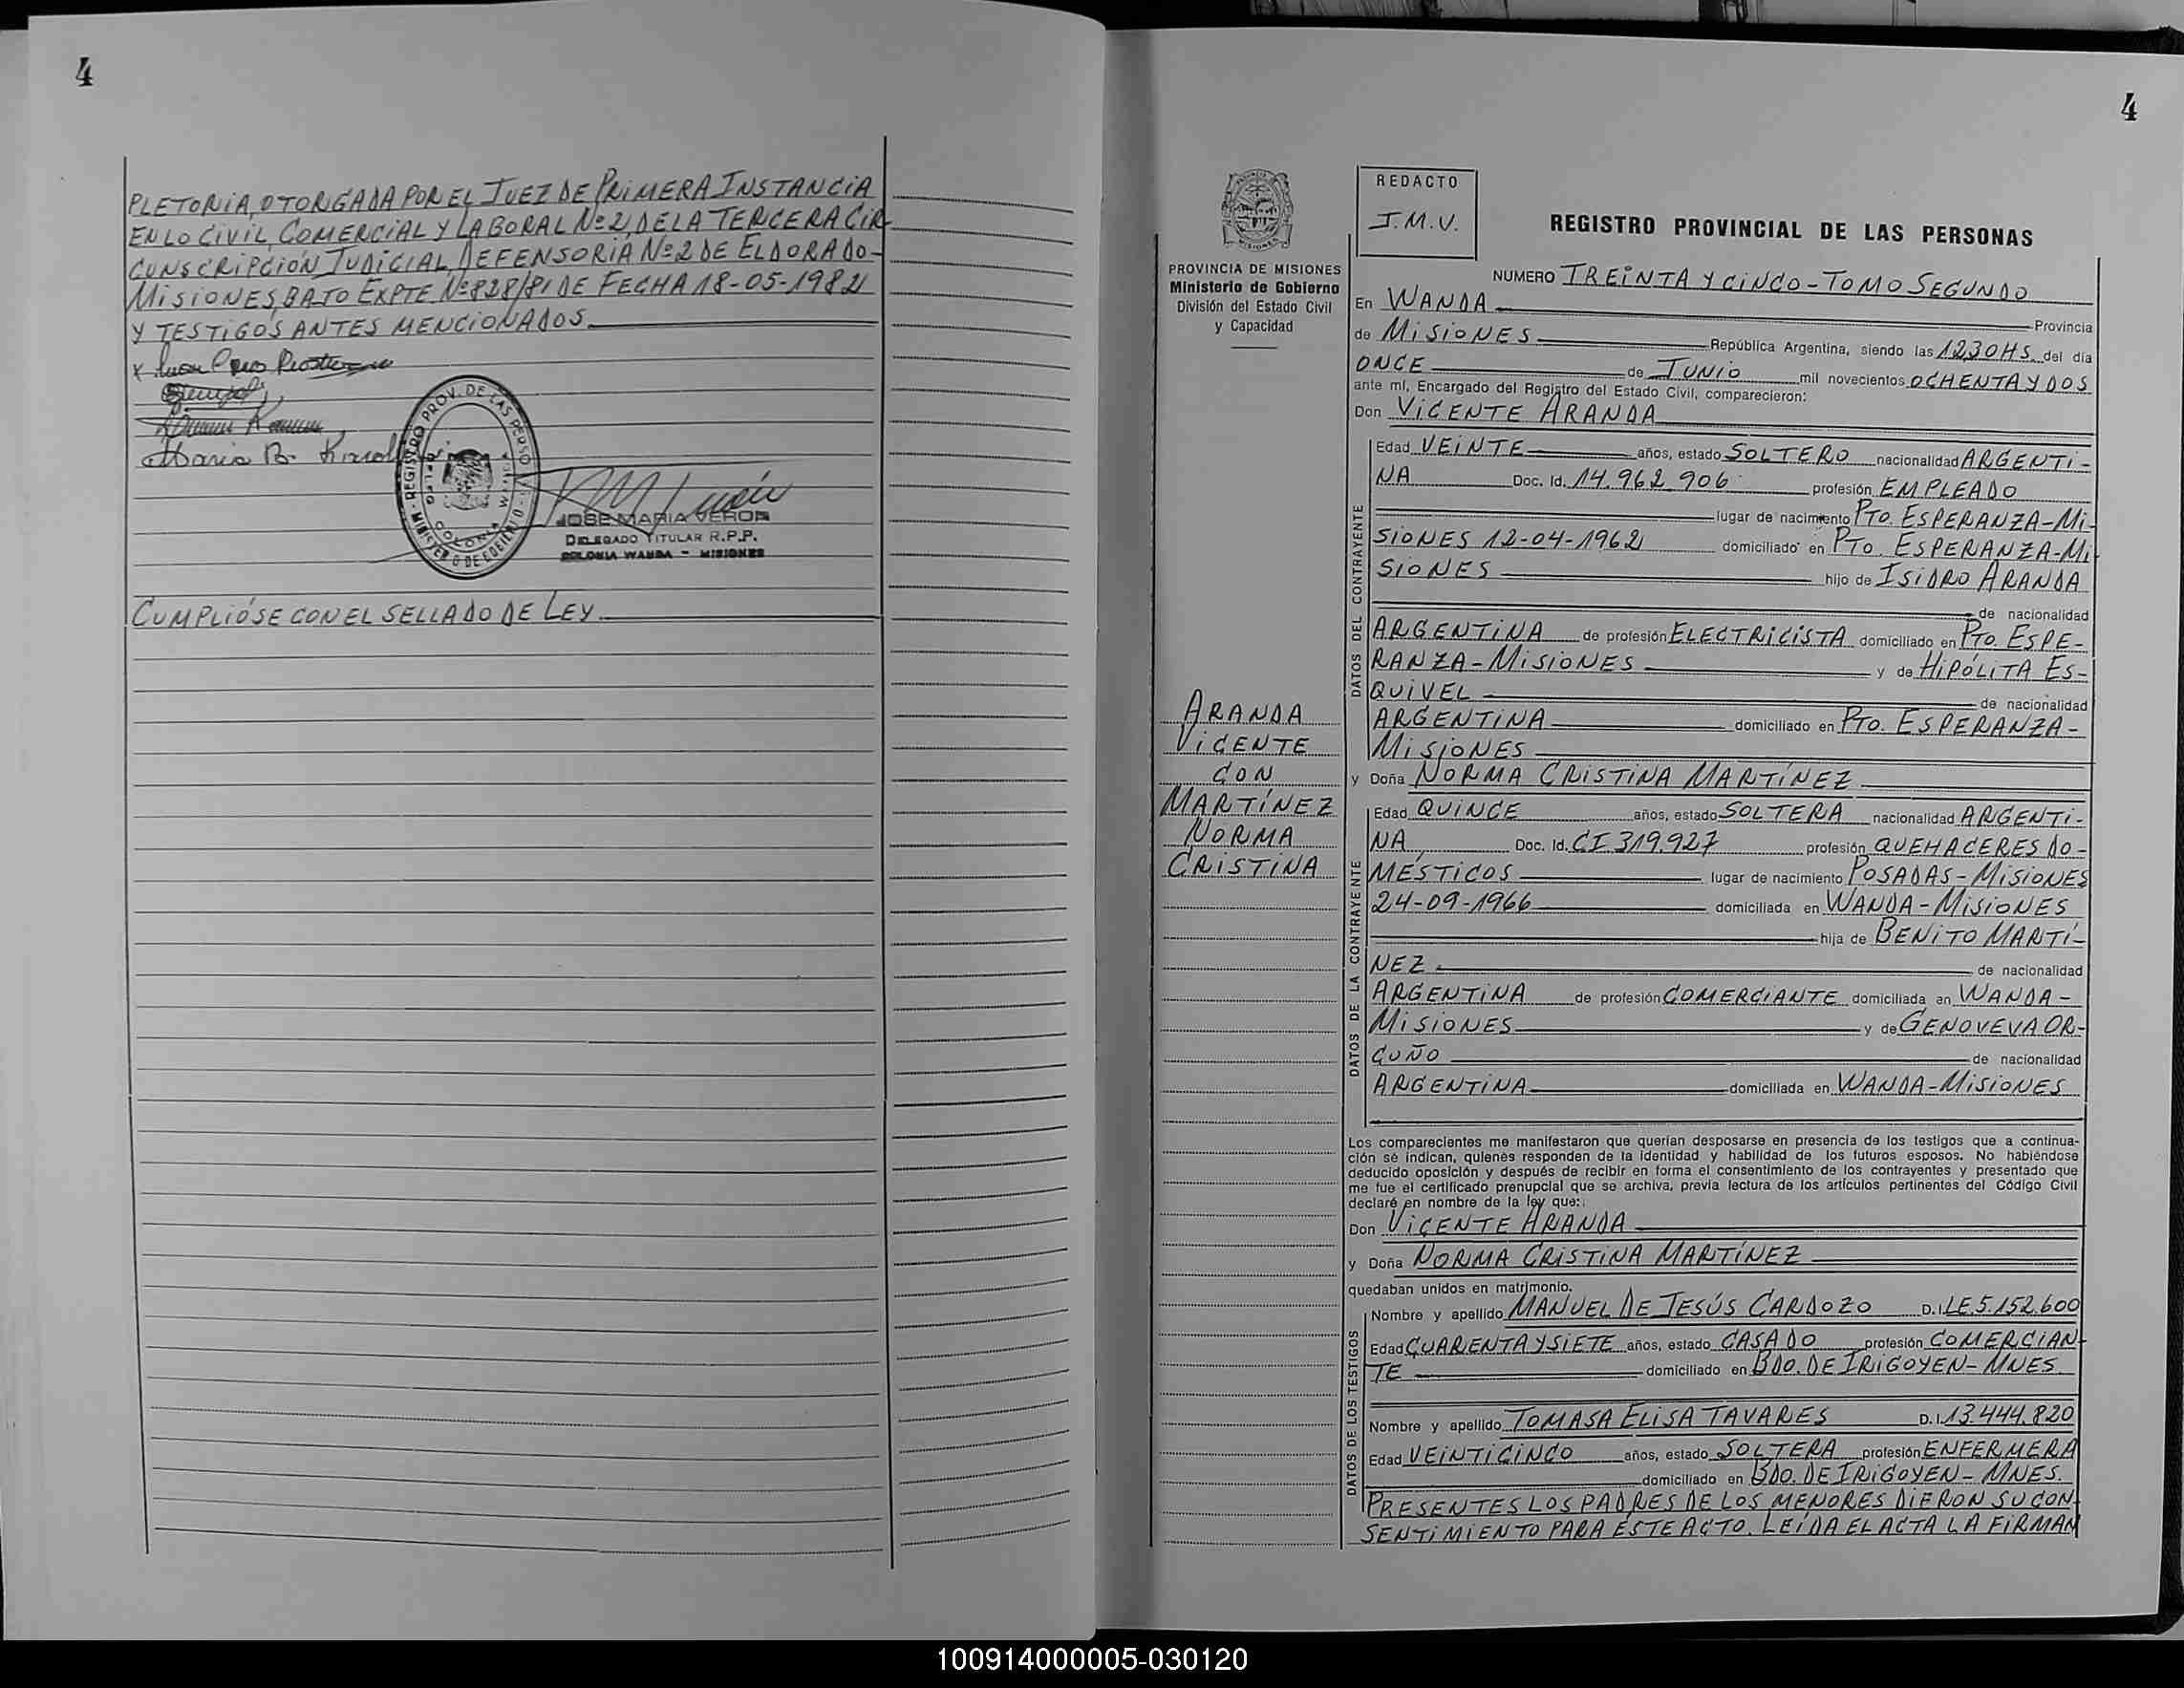 4
PLETORIA, OTORGADA POR EL JUEZ DE PRIMERA INSTANCIA
EN LO CIVIL, COMERCIAL Y LABORAL Nº 2, DE LA TERCERA CIR-
CUNSCRIPCIÓN JUDICIAL DEFENSORIA Nº 2 DE ELDORADO-
MISIONES, BAJO EXPTE. Nº 828/81 DE FECHA 18-05-1982
Y TESTIGOS ANTES MENCIONADOS.
Maria B.
JOSE MARIA VERON
DELEGADO TITULAR R.P.P.
COLONIA WANDA - MISIONES
CUMPLIÓSE CON EL SELLADO DE LEY.
4
PROVINCIA DE MISIONES
Ministerio de Gobierno
División del Estado Civil
y Capacidad
REDACTO
J.M.V.
REGISTRO PROVINCIAL DE LAS PERSONAS
NUMERO TREINTA Y CINCO - TOMO SEGUNDO
En WANDA Provincia
de MISIONES República Argentina, siendo las 12,30 HS. del día
ONCE de JUNIO mil novecientos OCHENTA Y DOS
ante mí, Encargado del Registro del Estado Civil, comparecieron:
Don VICENTE ARANDA
DATOS DEL CONTRAYENTE
Edad VEINTE años, estado SOLTERO nacionalidad ARGENTI-
NA Doc. Id. 14.962.906 profesión EMPLEADO
lugar de nacimiento PTO. ESPERANZA-MI-
SIONES 12-04-1962 domiciliado en PTO. ESPERANZA-MI-
SIONES hijo de ISIDRO ARANDA
de nacionalidad
ARGENTINA de profesión ELECTRICISTA domiciliado en PTO. ESPE-
RANZA-MISIONES y de HIPÓLITA ES-
QUIVEL de nacionalidad
ARGENTINA domiciliado en PTO. ESPERANZA-
MISIONES
ARANDA
VICENTE
CON
MARTÍNEZ
NORMA
CRISTINA
y Doña NORMA CRISTINA MARTÍNEZ
DATOS DE LA CONTRAYENTE
Edad QUINCE años, estado SOLTERA nacionalidad ARGENTI-
NA Doc. Id. CI. 319.927 profesión QUEHACERES DO-
MÉSTICOS lugar de nacimiento POSADAS-MISIONES
24-09-1966 domiciliada en WANDA-MISIONES
hija de BENITO MARTÍ-
NEZ de nacionalidad
ARGENTINA de profesión COMERCIANTE domiciliada en WANDA-
MISIONES y de GENOVEVA OR-
CUÑO de nacionalidad
ARGENTINA domiciliada en WANDA-MISIONES
Los comparecientes me manifestaron que querían desposarse en presencia de los testigos que a continua-
ción se indican, quienes responden de la identidad y habilidad de los futuros esposos. No habiéndose
deducido oposición y después de recibir en forma el consentimiento de los contrayentes y presentado que
me fue el certificado prenupcial que se archiva, previa lectura de los artículos pertinentes del Código Civil
declaré en nombre de la ley que:
Don VICENTE ARANDA
y Doña NORMA CRISTINA MARTÍNEZ
quedaban unidos en matrimonio.
DATOS DE LOS TESTIGOS
Nombre y apellido MANUEL DE JESÚS CARDOZO D.I. LE. 5.152.600
Edad CUARENTA Y SIETE años, estado CASADO profesión COMERCIAN-
TE domiciliado en BDO. DE IRIGOYEN-MNES.
Nombre y apellido TOMASA ELISA TAVARES D.I. 13.444.820
Edad VEINTICINCO años, estado SOLTERA profesión ENFERMERA
domiciliado en BDO. DE IRIGOYEN-MNES.
PRESENTES LOS PADRES DE LOS MENORES DIERON SU CON-
SENTIMIENTO PARA ÉSTE ACTO. LEÍDA EL ACTA LA FIRMAN
100914000005-030120